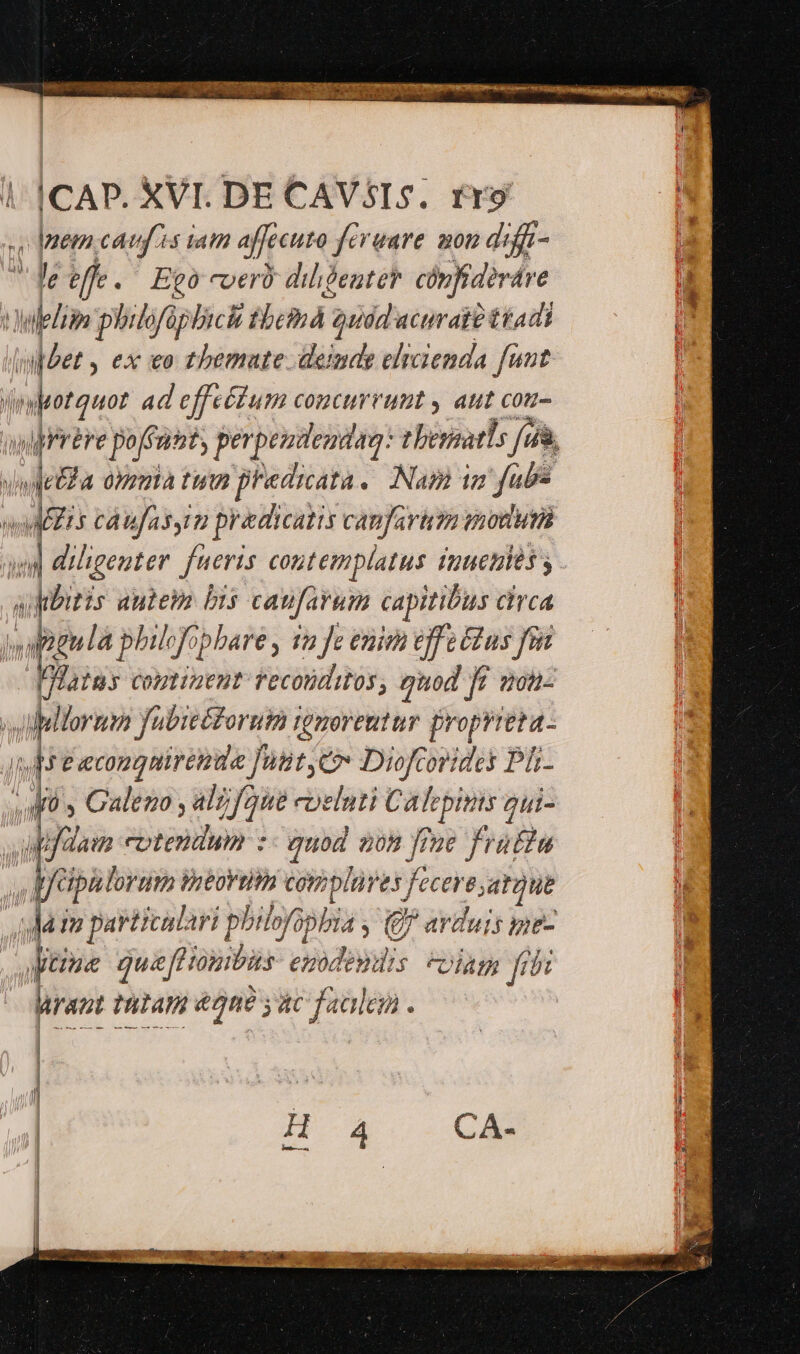 CAP. XVI. DE CAVSIS. 119
nem causis iam assecuto seruare non diffi-
le esse. Ego verò diligenter cõnsiderare
velim philosophicũ themà quàd acuratè tradi
bet, ex eo themate deinde elicienda sunt
quotquot ad effectum concurrunt, aut con-
rrere possunt, perpendendaq; thematis sua,
iecta omnia tum predicata. Nam in sub-
iectis causas, in prædicatis causarum modum
diligenter fueris contemplatus inuenies,
bitis autem his causarum capitibus circa
ngula philosophare, in se enim effectus sui
flatus continent reconditos, quod si non-
llorum subiectorum ignorentur proprieta-
s e æconquirendæ sunt, & Dioscorides Pli-
io, Galeno, alijsque veluti Calepinis qui-
sdam vtendum : quod non sine fructu
scipulorum meorum complures fecere, atque
a in particulari philosophia, & arduis me-
cinæ quæstionibus enodendis viam sibi
arant tutam æquè, ac facilem.
H 4 CA-